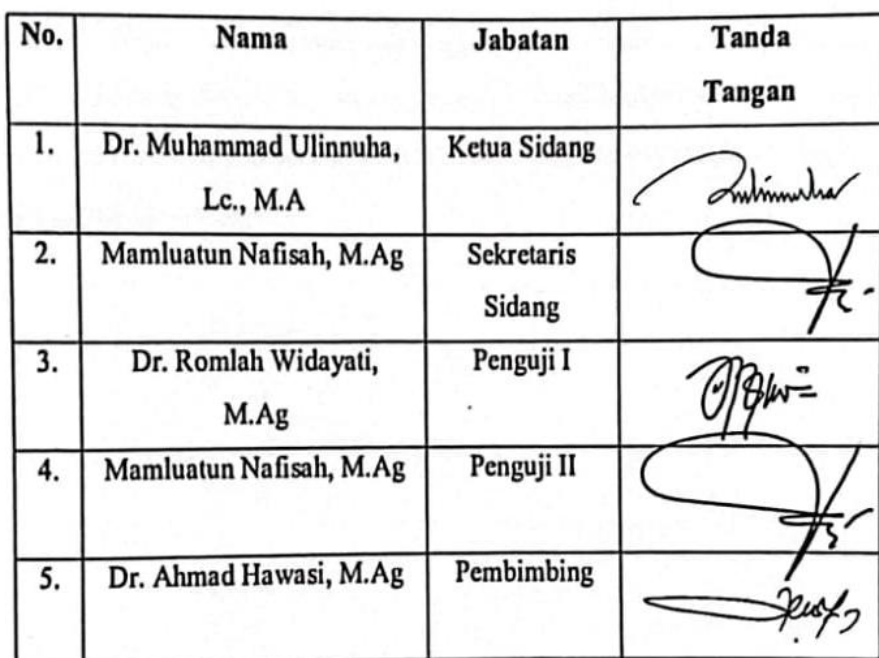 No. Nama Jabatan Tanda
Tangan
1. Dr. Muhammad Ulinnuha, Ketua Sidang
Lc., M.A
2. Mamluatun Nafisah, M.Ag Sekretaris
Sidang
3. Dr. Romlah Widayati, Penguji I
M.Ag
4. Mamluatun Nafisah, M.Ag Penguji II
5. Dr. Ahmad Hawasi, M.Ag Pembimbing